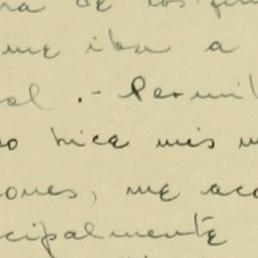 ra de los fin
me iba a
al .- Permit
o hice mis m
ones, me aco
cipalmente